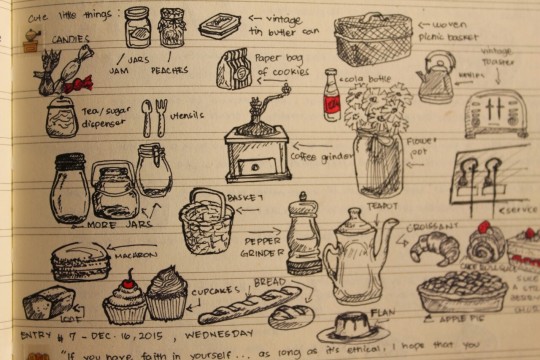 Cute little things:
CANDIES
JARS
JAM
PEACHES
← vintage
tin butter can
← woven
picnic basket
vintage
toaster
Paper bag
of cookies
cola bottle
Tea/sugar
dispenser
utensils
Coffee grinder
Flower
pot
← service
← MORE JARS
BASKET
TEAPOT
PEPPER
GRINDER
CROISSANT
MACARON
CUPCAKES
BREAD
FLAN
APPLE PIE
ENTRY # 7 - DEC. 16, 2015, WEDNESDAY
"If you have faith in yourself... as long as it's ethical, I hope that you